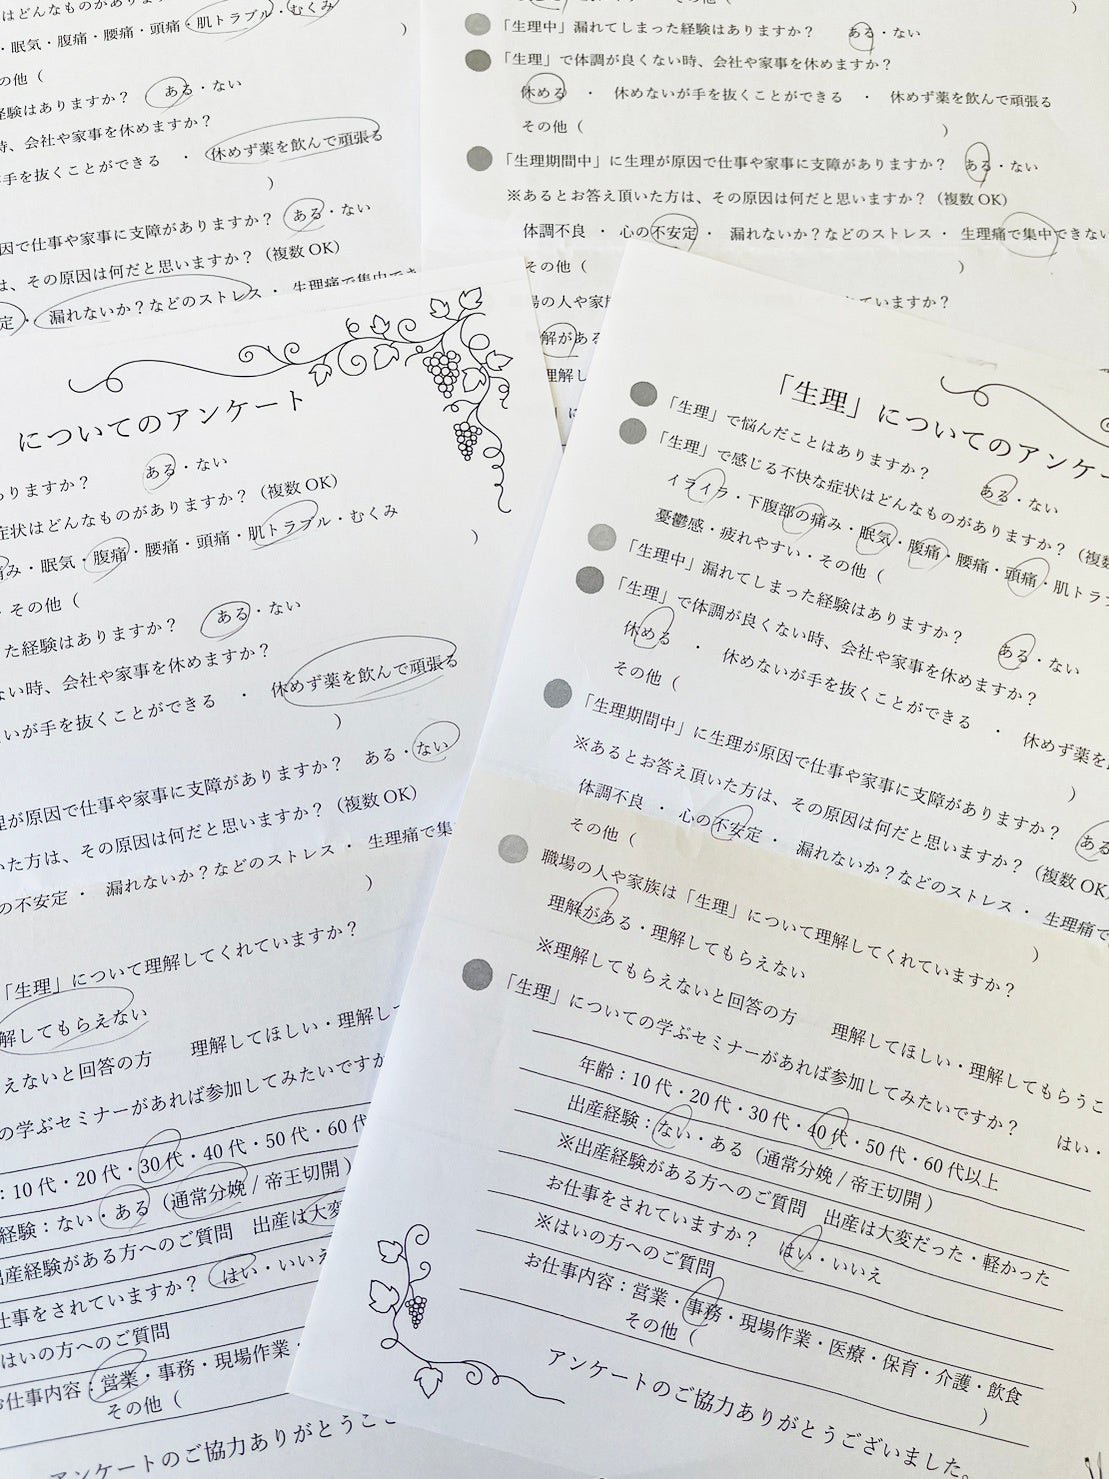 はどんなものがありま
・眠気・腹痛・腰痛・頭痛・肌トラブル・むくみ
の他（　　　）
経験はありますか？　ある・ない
時、会社や家事を休めますか？
手を抜くことができる　・　休めず薬を飲んで頑張る
）
因で仕事や家事に支障がありますか？　ある・ない
は、その原因は何だと思いますか？（複数OK）
定・漏れないか？などのストレス・生理痛で集中でき
「生理中」漏れてしまった経験はありますか？　ある・ない
「生理」で体調が良くない時、会社や家事を休めますか？
休める　・　休めないが手を抜くことができる　・　休めず薬を飲んで頑張る
その他（　　　）
「生理期間中」に生理が原因で仕事や家事に支障がありますか？　ある・ない
※あるとお答え頂いた方は、その原因は何だと思いますか？（複数OK）
体調不良　・　心の不安定　・　漏れないか？などのストレス・　生理痛で集中できない
その他（　　　）
場の人や家族　ていますか？
解がある
理解し
についてのアンケート
りますか？　ある・ない
症状はどんなものがありますか？（複数OK）
み・眠気・腹痛・腰痛・頭痛・肌トラブル・むくみ
・その他（　　　）
た経験はありますか？　ある・ない
ない時、会社や家事を休めますか？
いが手を抜くことができる　・　休めず薬を飲んで頑張る
）
理が原因で仕事や家事に支障がありますか？　ある・ない
いた方は、その原因は何だと思いますか？（複数OK）
の不安定　・　漏れないか？などのストレス　・　生理痛で集
）
「生理」について理解してくれていますか？
解してもらえない
えないと回答の方　理解してほしい・理解し
の学ぶセミナーがあれば参加してみたいですか
：10代・20代・30代・40代・50代・60代
経験：ない・ある（通常分娩 / 帝王切開）
出産経験がある方へのご質問　出産は大変
仕事をされていますか？　はい・いいえ
はいの方へのご質問
お仕事内容：営業・事務・現場作業・
その他（
アンケートのご協力ありがとうご
「生理」についてのアンケー
「生理」で悩んだことはありますか？　ある・ない
「生理」で感じる不快な症状はどんなものがありますか？（複数
イライラ・下腹部の痛み・眠気・腹痛・腰痛・頭痛・肌トラ
憂鬱感・疲れやすい・その他（
「生理中」漏れてしまった経験はありますか？　ある・ない
「生理」で体調が良くない時、会社や家事を休めますか？
休める　・　休めないが手を抜くことができる　・　休めず薬を
その他（　　　）
「生理期間中」に生理が原因で仕事や家事に支障がありますか？　ある
※あるとお答え頂いた方は、その原因は何だと思いますか？（複数OK）
体調不良　・　心の不安定　・　漏れないか？などのストレス・　生理痛で
その他（　　　）
職場の人や家族は「生理」について理解してくれていますか？
理解がある・理解してもらえない
※理解してもらえないと回答の方　理解してほしい・理解してもらうこ
「生理」についての学ぶセミナーがあれば参加してみたいですか？　はい・
年齢：10代・20代・30代・40代・50代・60代以上
出産経験：ない・ある（通常分娩 / 帝王切開）
※出産経験がある方へのご質問　出産は大変だった・軽かった
お仕事をされていますか？　はい・いいえ
※はいの方へのご質問
お仕事内容：営業・事務・現場作業・医療・保育・介護・飲食
その他（　　　）
アンケートのご協力ありがとうございました。